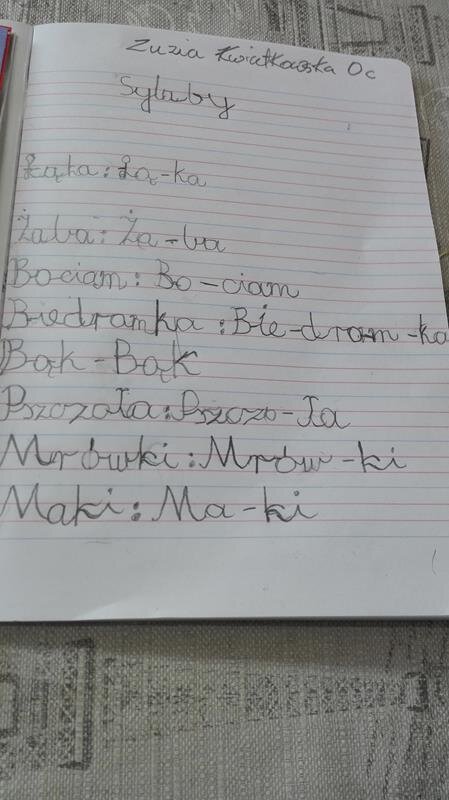 Zuzia Kwiatkowska Oc
Sylaby
Łąka: Łą-ka
Żaba: Ża-ba
Bocian: Bo-cian
Biedronka: Bie-dron-ka
Bąk - Bąk
Pszczoła: Pszczo-ła
Mrówki: Mrów-ki
Maki: Ma-ki